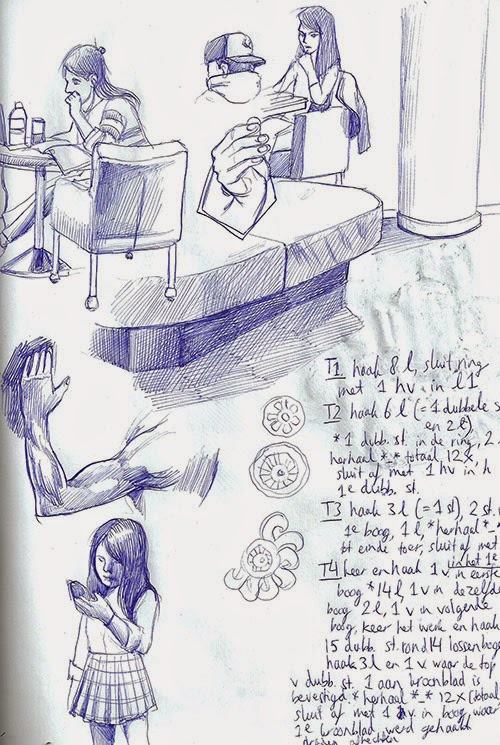 T1 haak 8 l, sluit ring
met 1 hv in l 1
T2 haak 6 l (= 1 dubbele s
en 2 l)
*1 dubb. st. in de ring, 2
herhaal *_* totaal 12x,
sluit af met 1 hv in h
1e dubb. st.
T3 haak 3 l (= 1 st), 2 st.
1e boog, 1 l, *herhaal *_
tot einde toer, sluit af met
in het 1e
T4 keer en haak 1 v in eerste
boog *14 l, 1 v in dezelfd
boog 2 l, 1 v in volgende
boog, keer het werk en haak
15 dubb. st. rond 14 lossenboog
haak 3 l en 1 v waar de top
v dubb. st. 1 aan kroonblad is
bevestigd * herhaal *_* 12x (totaal
sluit af met 1 hv in boog waar
1e kroonblad werd gehaakt